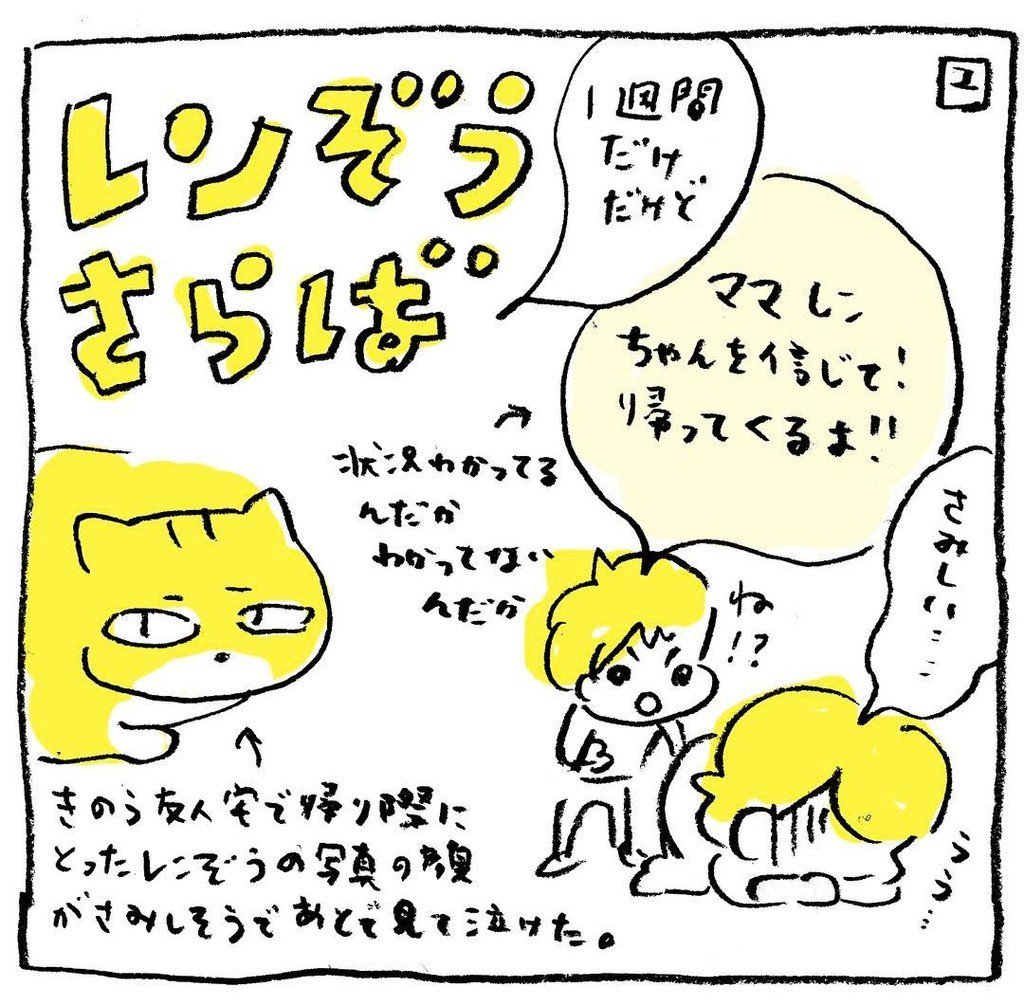 レンぞう
さらば
1週間
だけ
だけど
ユ
ママレン
ちゃんを信じて!
帰ってくるよ!!
状況わかってる
んだか
わかってない
んだか
さみしい……
ね
!?
ううう…
きのう友人宅で帰り際に
とったレンぞうの写真の顔
がさみしそうであとで見て泣けた。